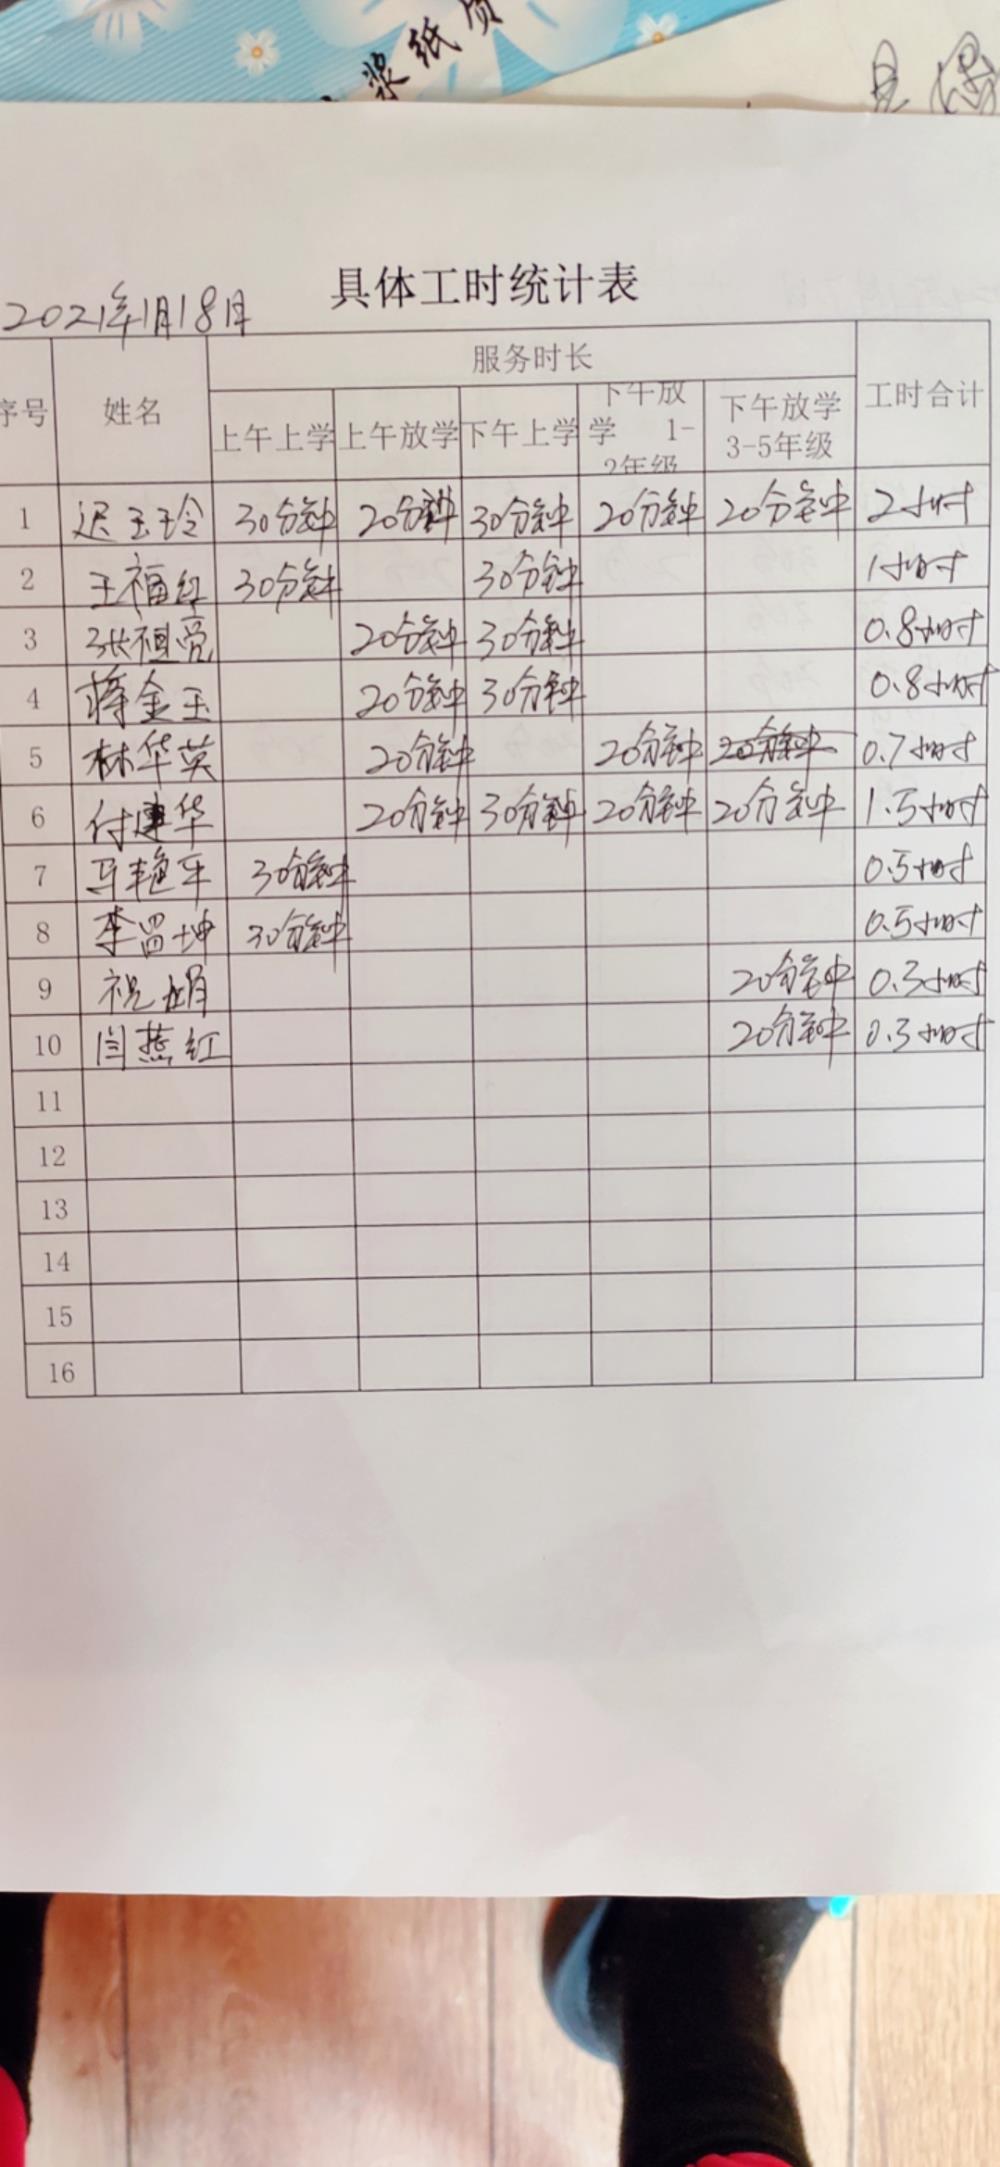 浆纸质
具体工时统计表
2021年1月18日
序号 姓名 服务时长 工时合计
上午上学 上午放学 下午上学 下午放学 1-2年级 下午放学 3-5年级
1 迟玉玲 30分钟 20分钟 30分钟 20分钟 20分钟 2小时
2 王福红 30分钟 30分钟 1小时
3 张祖亮 20分钟 30分钟 0.8小时
4 蒋金玉 20分钟 30分钟 0.8小时
5 林华英 20分钟 20分钟 20分钟 0.7小时
6 付建华 20分钟 30分钟 20分钟 20分钟 1.5小时
7 马艳平 30分钟 0.5小时
8 李昌坤 30分钟 0.5小时
9 祝娟 20分钟 0.3小时
10 闫燕红 20分钟 0.3小时
11
12
13
14
15
16